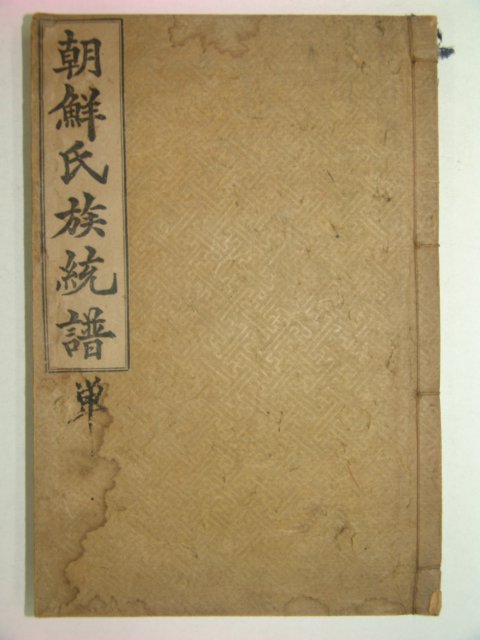 朝鮮氏族統譜
単